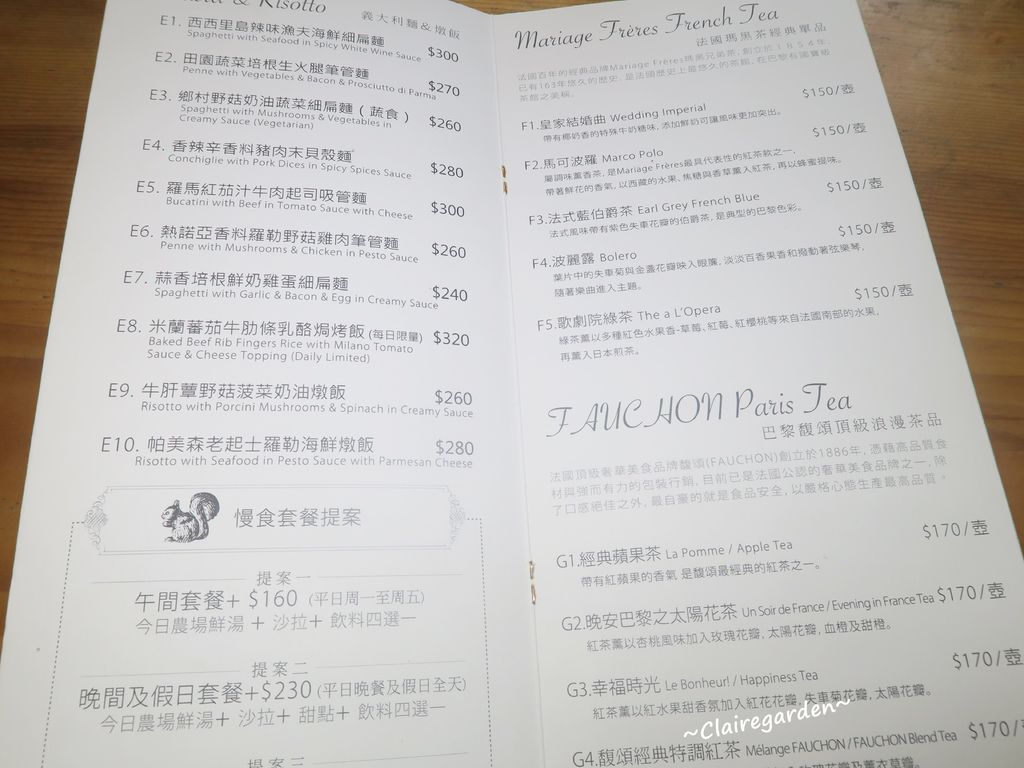 & Risotto 義大利麵&燉飯
E1. 西西里島辣味漁夫海鮮細扁麵
Spaghetti with Seafood in Spicy White Wine Sauce $300
E2. 田園蔬菜培根生火腿筆管麵
Penne with Vegetables & Bacon & Prosciutto di Parma $270
E3. 鄉村野菇奶油蔬菜細扁麵（蔬食）
Spaghetti with Mushrooms & Vegetables in $260
Creamy Sauce (Vegetarian)
E4. 香辣辛香料豬肉末貝殼麵
Conchiglie with Pork Dices in Spicy Spices Sauce $280
E5. 羅馬紅茄汁牛肉起司吸管麵
Bucatini with Beef in Tomato Sauce with Cheese $300
E6. 熱諾亞香料羅勒野菇雞肉筆管麵
Penne with Mushrooms & Chicken in Pesto Sauce $260
E7. 蒜香培根鮮奶雞蛋細扁麵
Spaghetti with Garlic & Bacon & Egg in Creamy Sauce $240
E8. 米蘭蕃茄牛肋條乳酪焗烤飯 (每日限量) $320
Baked Beef Rib Fingers Rice with Milano Tomato
Sauce & Cheese Topping (Daily Limited)
E9. 牛肝蕈野菇菠菜奶油燉飯 $260
Risotto with Porcini Mushrooms & Spinach in Creamy Sauce
E10. 帕美森老起士羅勒海鮮燉飯 $280
Risotto with Seafood in Pesto Sauce with Parmesan Cheese
慢食套餐提案
提案一
午間套餐+ $160 (平日周一至周五)
今日農場鮮湯＋ 沙拉＋ 飲料四選一
提案二
晚間及假日套餐+$230 (平日晚餐及假日全天)
今日農場鮮湯＋ 沙拉＋ 甜點＋ 飲料四選一
提案三
Mariage Frères French Tea
法國瑪黑茶經典單品
法國百年的經典品牌Mariage Frères瑪黑兄弟茶, 創立於１８５４年,
已有163年悠久的歷史, 是法國歷史上最悠久的茶館, 在巴黎有國寶級
茶館之美稱。
$150/壺
F1.皇家結婚曲 Wedding Imperial
帶有椰奶香的特殊牛奶糖味, 添加鮮奶可讓風味更加突出。
$150/壺
F2.馬可波羅 Marco Polo
屬調味薰香茶, 是Mariage Frères最具代表性的紅茶款之一,
帶著鮮花的香氣, 以西藏的水果、焦糖與香草薰入紅茶, 再以蜂蜜提味。
$150/壺
F3.法式藍伯爵茶 Earl Grey French Blue
法式風味帶有紫色失車花瓣的伯爵茶, 是典型的巴黎色彩。
$150/壺
F4.波麗露 Bolero
葉片中的失車菊與金盞花瓣映入眼簾, 淡淡百香果香和撥動著弦樂琴,
隨著樂曲進入主題。
$150/壺
F5.歌劇院綠茶 The a L'Opera
綠茶薰以多種紅色水果香-草莓、紅莓、紅櫻桃等來自法國南部的水果,
再薰入日本煎茶。
FAUCHON Paris Tea
巴黎馥頌頂級浪漫茶品
法國頂級奢華美食品牌馥頌(FAUCHON)創立於1886年, 憑藉高品質食
材與強而有力的包裝行銷, 目前已是法國公認的奢華美食品牌之一, 除
了口感絕佳之外, 最自豪的就是食品安全, 以嚴格心態生產最高品質。
$170/壺
G1.經典蘋果茶 La Pomme / Apple Tea
帶有紅蘋果的香氣 是馥頌最經典的紅茶之一。
G2.晚安巴黎之太陽花茶 Un Soir de France / Evening in France Tea $170/壺
紅茶薰以杏桃風味加入玫瑰花瓣, 太陽花瓣, 血橙及甜橙。
$170/壺
G3.幸福時光 Le Bonheur! / Happiness Tea
紅茶薰以紅水果甜香氛加入紅花花瓣, 失車菊花瓣, 太陽花瓣。
G4.馥頌經典特調紅茶 Mélange FAUCHON / FAUCHON Blend Tea $170/
玫瑰花瓣及薰衣草瓣。
~Clairegarden~